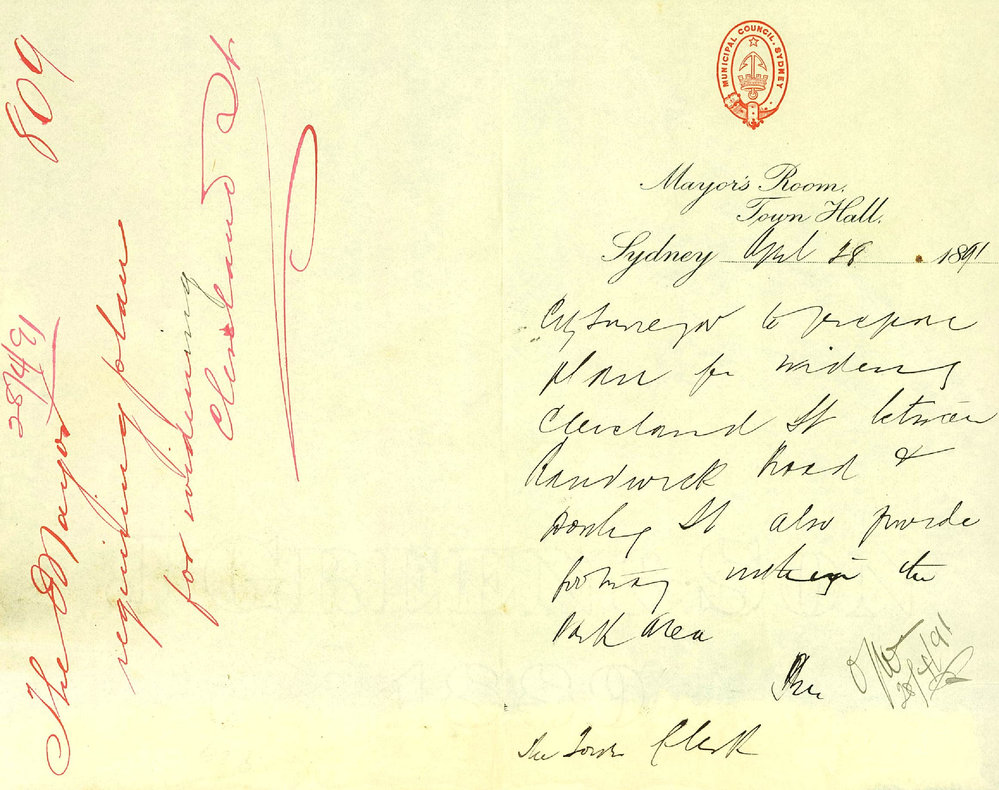 809
28/4/91
The Mayor
requiring plan
for widening
Cleveland St
MUNICIPAL COUNCIL. SYDNEY
Mayor's Room.
Town Hall.
Sydney Apl 28 1891
City Surveyor to prepare
plan for widening
Cleveland St between
Randwick Road &
Dowling St also provide
footway within the
Park Area
28/4/91
The Town Clerk